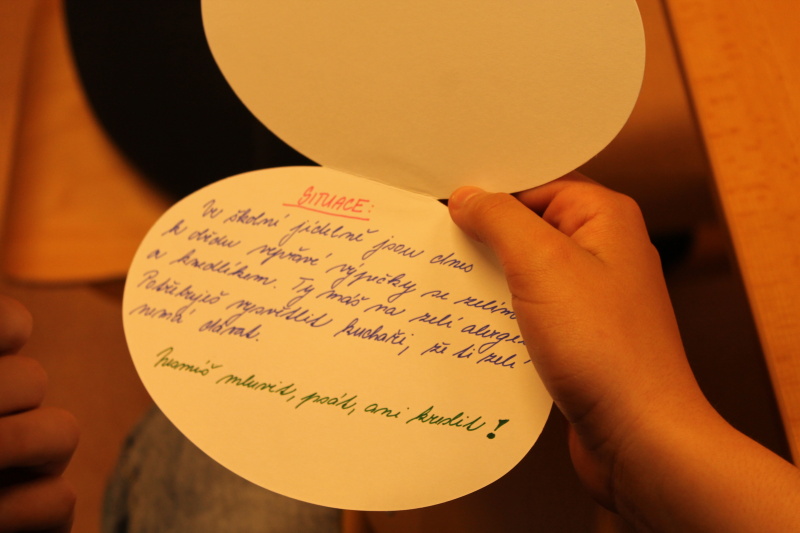 SITUACE:
Ve školní jídelně jsou dnes
k obědu vepřové výpečky se zelím
a knedlíkem. Ty máš na zelí alergii
Potřebuješ vysvětlit kuchaři, že ti zelí
nemá dávat.
Nesmíš mluvit, psát, ani kreslit!